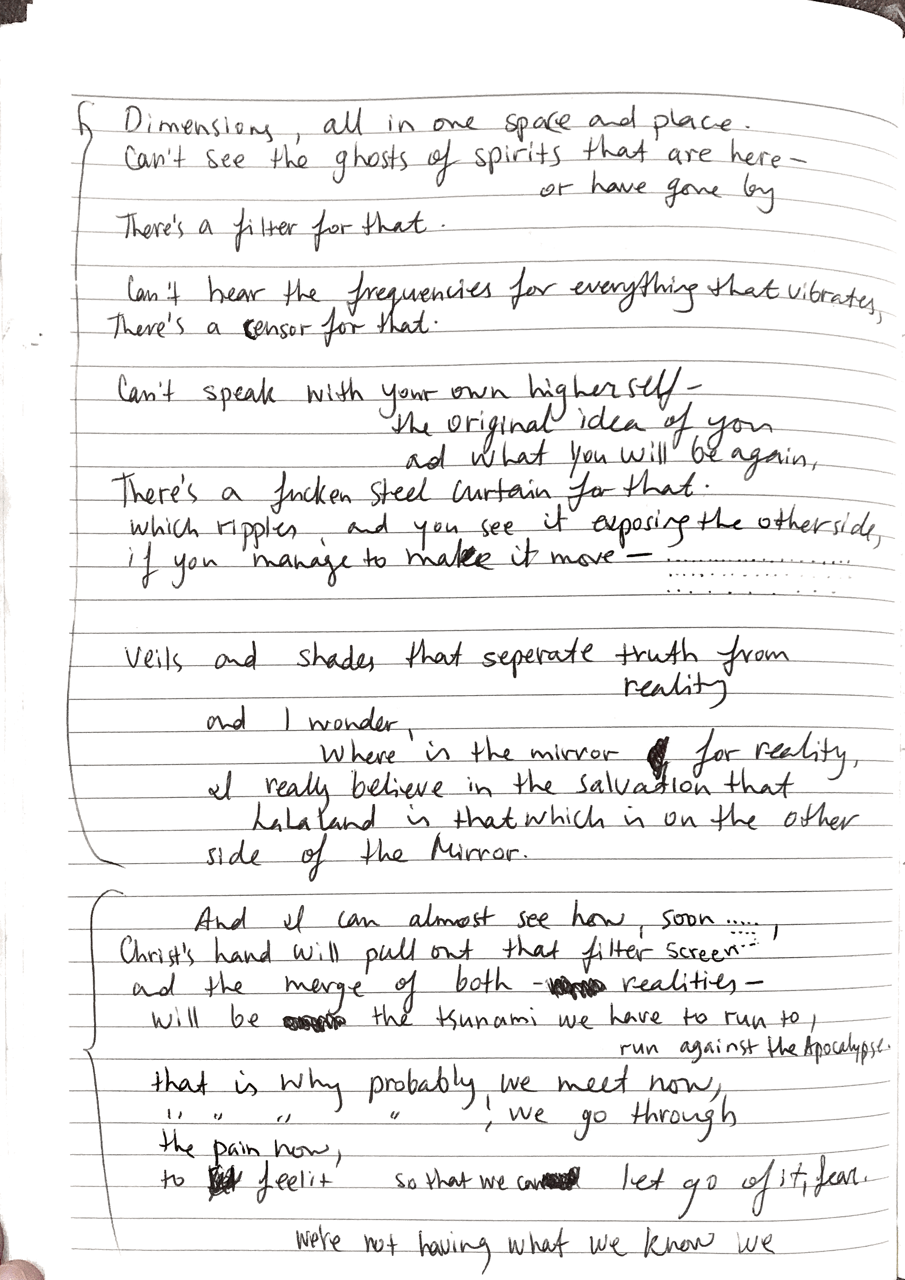 Dimensions, all in one space and place.
Can't see the ghosts of spirits that are here –
or have gone by
There's a filter for that.
Can't hear the frequencies for everything that vibrates,
There's a censor for that.
Can't speak with your own higherself –
the original idea of you
ad what you will be again,
There's a fucken steel curtain for that.
which ripples, and you see it exposing the otherside,
if you manage to make it move – ..............
..............
..............
Veils and shades that seperate truth from
reality
and I wonder,
Where is the mirror for reality,
I really believe in the salvation that
Lalaland is that which is on the other
side of the Mirror.
And I can almost see how, soon .....,
Christ's hand will pull out that filter screen
ad the merge of both – realities –
will be the tsunami we have to run to,
run against the Apocalypse.
that is why probably, we meet now,
" " " " , we go through
the pain now,
to feel it so that we can let go of it, fear.
we're not having what we know we